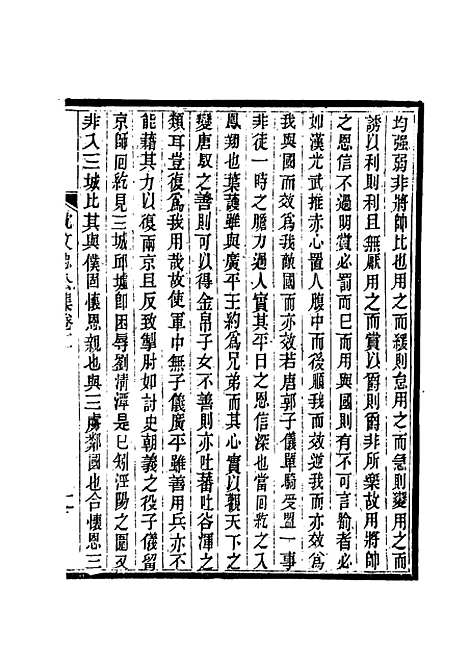 均强弱非將帥比也用之而緩則怠用之而急則變用之而
誘以利則利且無厭用之而賞以爵則爵非所樂故用將帥
之恩信不過明賞必罰而巳而用與國則有不可言喻者必
如漢光武推赤心置人腹中而後順我而效逆我而亦效爲
我與國而效爲我敵國而亦效若唐郭子儀單騎受盟一事
非徒一時之膽力過人實其平日之恩信深也當回紇之入
鳳翔也葉護雖與廣平王約爲兄弟而其心實以觀天下之
變唐馭之善則可以得金帛子女不善則亦吐蕃吐谷渾之
類耳豈復爲我用哉故使軍中無子儀廣平雖善用兵亦不
能藉其力以復兩京且反致掣肘如討史朝義之役子儀留
京師回紇見三城邱墟卽困辱劉清潭是巳矧涇陽之圍又
非入三城比其與僕固懷恩親也與三虜鄰國也合懷恩三
沈文忠公集卷一